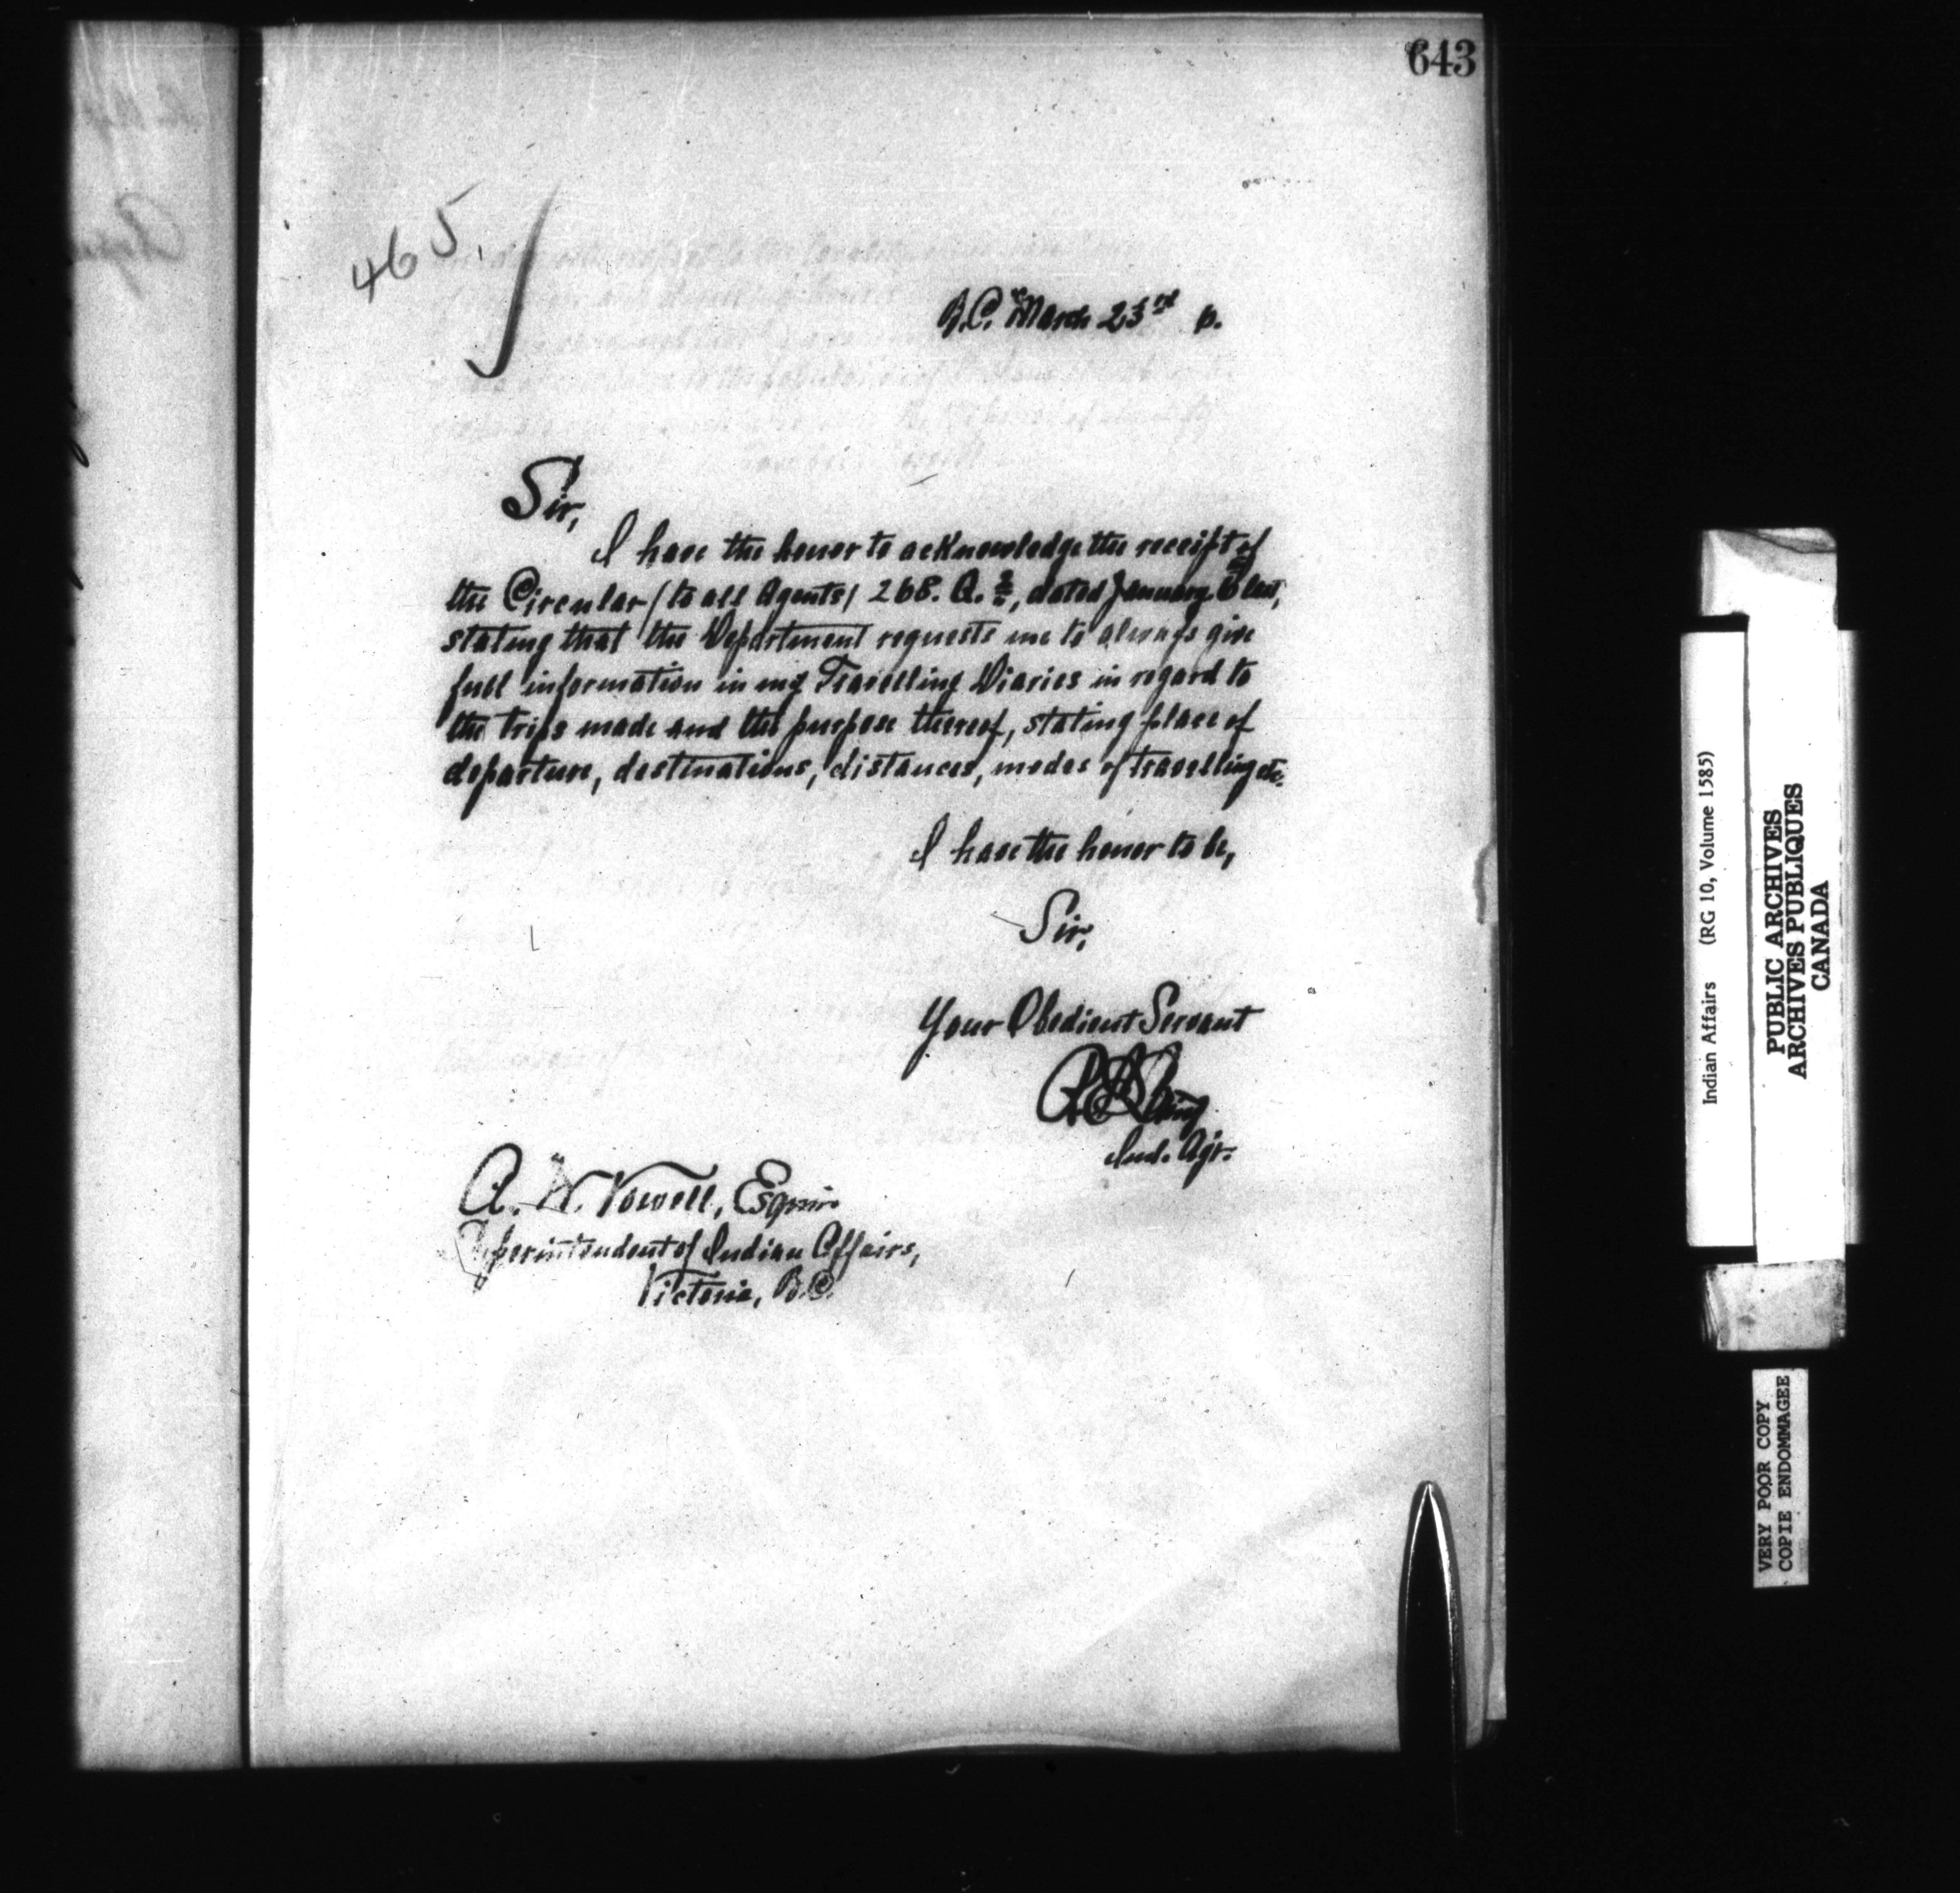 643
465.
B.C. March 23rd
Sir,
I have the honor to acknowledge the receipt of
the Circular (to all Agents) 268. dated January last,
stating that the Department requests me to always give
full information in my Travelling Diaries in regard to
the trips made and the purpose thereof, stating place of
departure, destinations, distances, modes of travelling etc.
I have the honor to be,
Sir,
Your Obedient Servant
Ind. Agt.
A. W. Vowell, Esquire
Superintendent of Indian Affairs,
Victoria, B.C.
Indian Affairs (RG 10, Volume 1585)
PUBLIC ARCHIVES
ARCHIVES PUBLIQUES
CANADA
VERY POOR COPY
COPIE ENDOMMAGEE